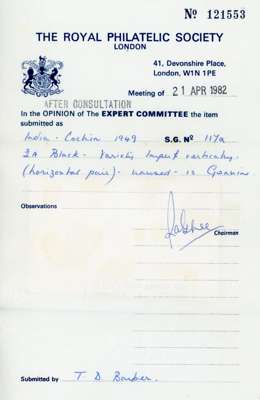 Nº 121553
THE ROYAL PHILATELIC SOCIETY
LONDON
41, Devonshire Place,
London, W1N 1PE
Meeting of 21 APR 1982
AFTER CONSULTATION
In the OPINION of The EXPERT COMMITTEE the item
submitted as
India - Cochin 1949 S.G. Nº 117a
2A Black - Variety Imperf vertically
(horizontal pair) - unused - is Genuine
Observations
Chairman
Submitted by T D Barber.